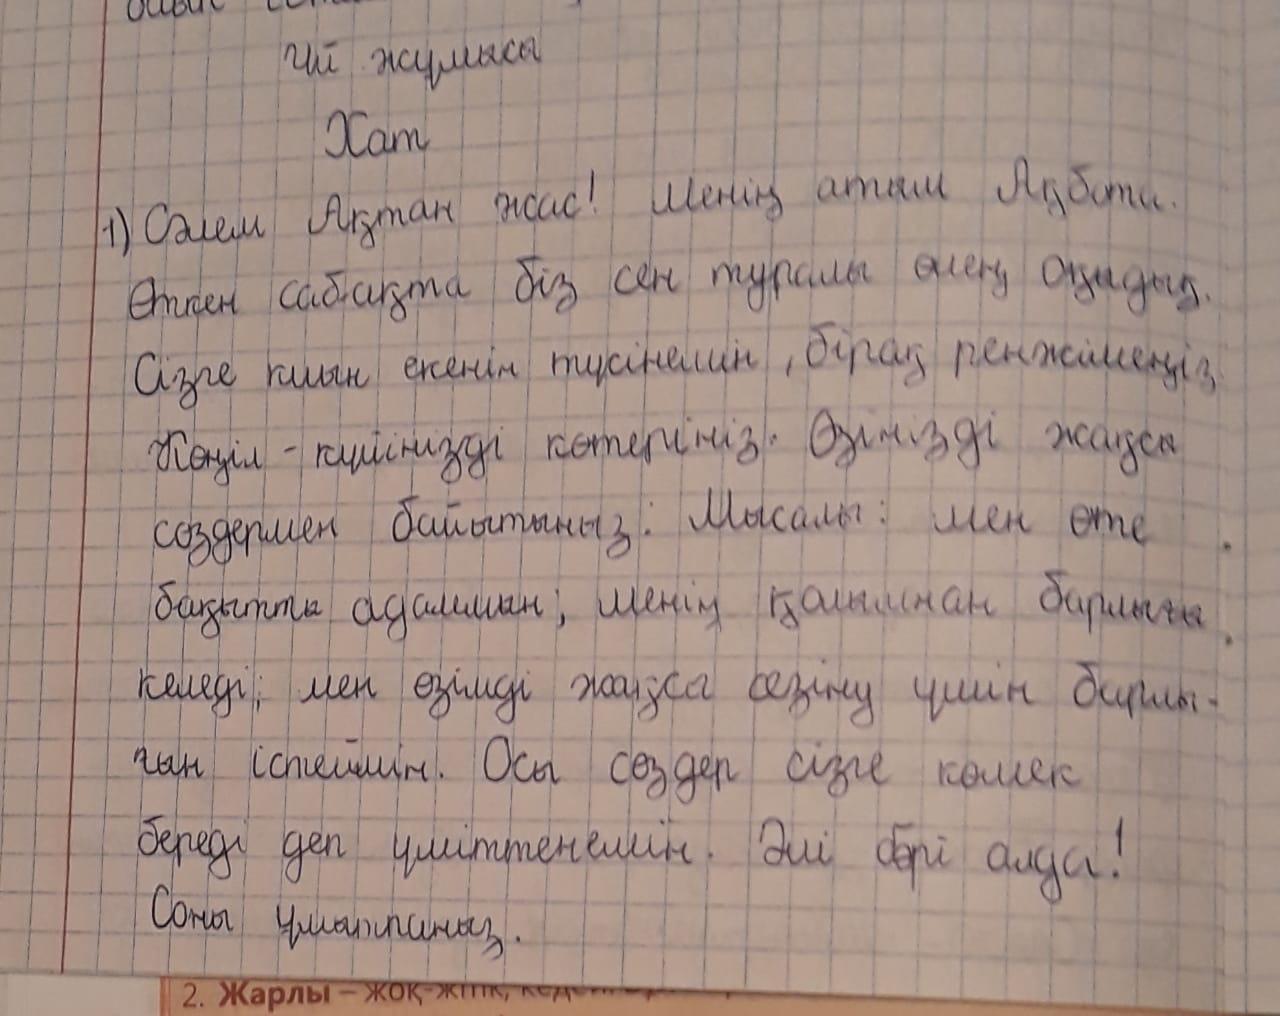 Үй жұмысы
Хат
1) Сәлем Ақтан жас! Менің атым Ақбота.
Өткен сабақта біз сен туралы өлең оқыдық.
Сізге қиын екенін түсінемін, бірақ ренжімеңіз.
Көңіл-күйінізді көтерініз. Өзінізді жақсы
сөздермен байытыныз. Мысалы: мен өте
бақытты адаммын; менің қолымнан барлығы
келеді; мен өзімді жақсы сезіну үшін барлы-
ғын істеймін. Осы сөздер сізге көмек
береді деп үміттенемін. Әлі бәрі алда!
Соны ұмытпаныз.
2. Жарлы – жоқ-жітік,